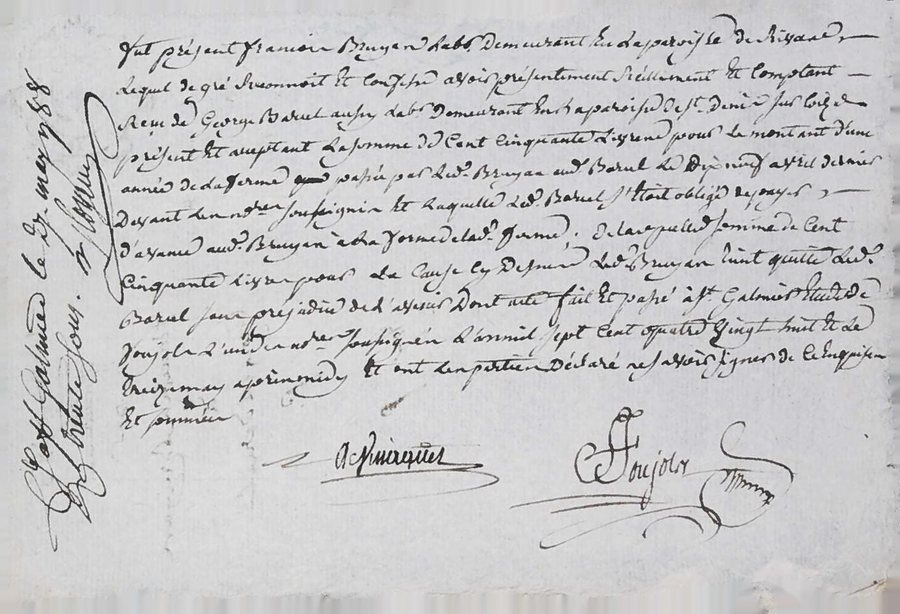 fut présent francois Bruyan Labr. Demeurant En La paroisse de
Lequel de gré Reconnoit Et Confesse avoir présentement Réellement Et Comptant
Reçu de George Barul aussy Labr. Demeurant En La paroisse de st. Denis sur Coize
présent Et aceptant La somme de Cent Cinquante Livres pour le montant d'une
année de La ferme passée par Led. Bruyan aud. Barul Le Dix neuf avril dernier
Devant Les nores. soussignés Et Laquelle Led. Barul s'Etoit obligé de payer
d'avance aud. Bruyan à La forme de lad. ferme, de laquelle somme de Cent
Cinquante Livres pour La Cause Cy Dessus Led. Bruyan tient quitte Led.
Barul sans préjudice de L'avenir Dont acte fait Et passé à St. Galmier Etude de
Joujole L'un des nores. soussignés L'an mil sept Cent quatre Vingt huit Et Le
treize may après midy Et ont Les parties Déclaré ne savoir signer de Ce Enquises
Et sommées
Joujoly
St. Galmier le may 1788
Rx trente sous.